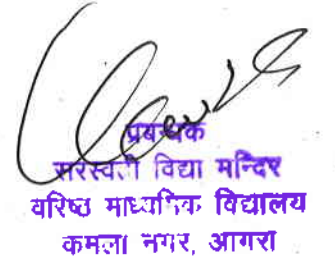 प्रबन्धक
सरस्वती विद्या मन्दिर
वरिष्ठ माध्यमिक विद्यालय
कमला नगर, आगरा